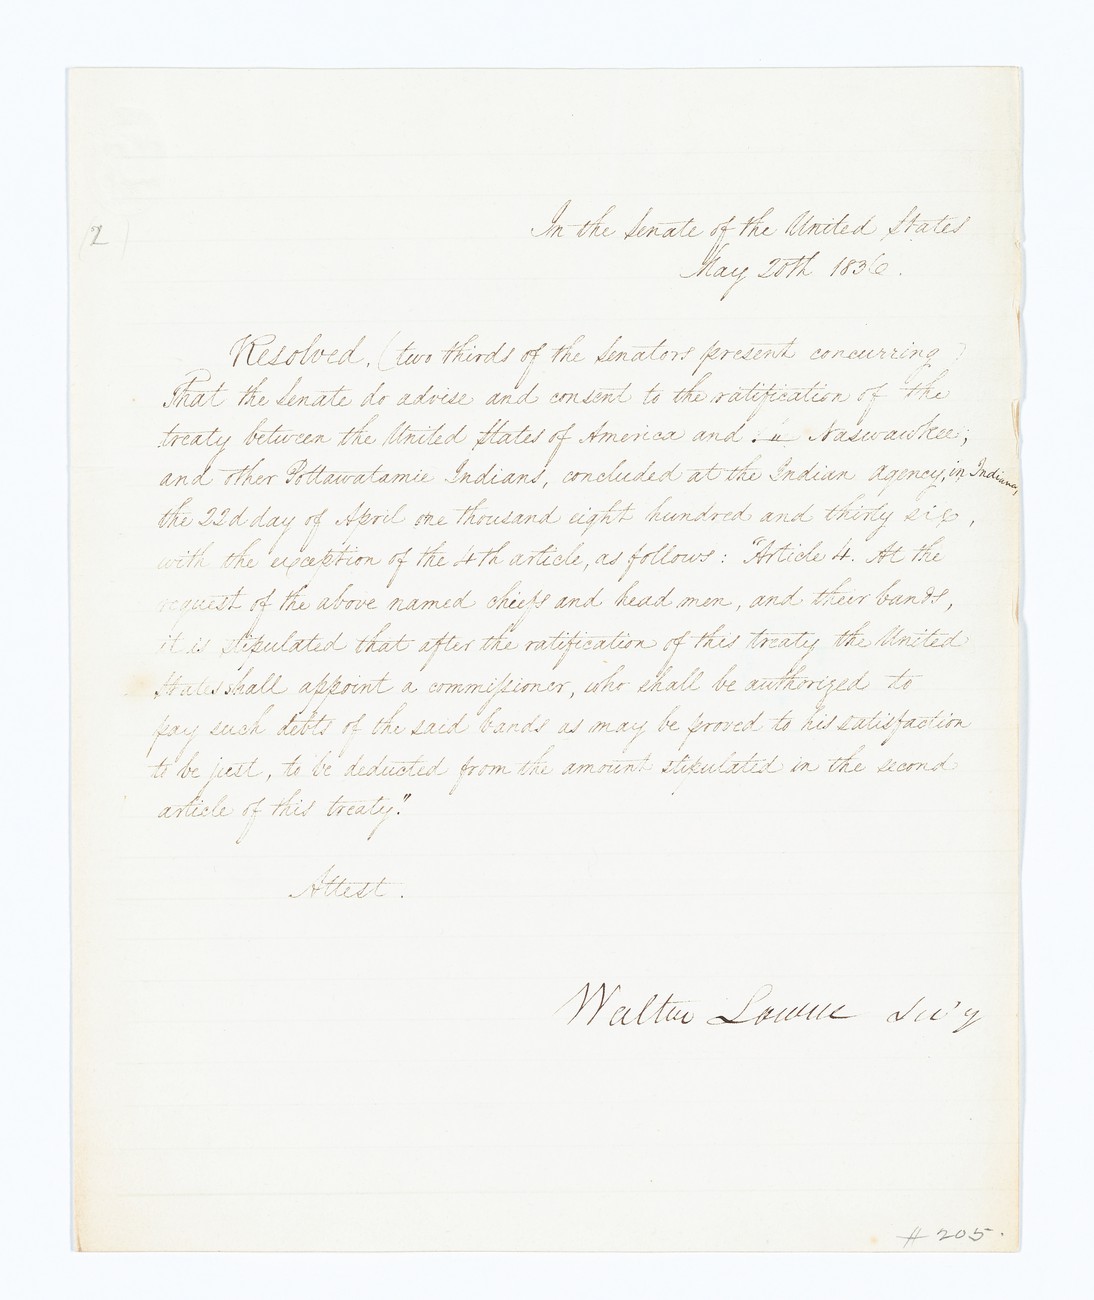 2
In the Senate of the United States
May 20th 1836.
Resolved, (two thirds of the Senators present concurring)
That the Senate do advise and consent to the ratification of the
treaty between the United States of America and Naswawkee,
and other Pottawatamie Indians, concluded at the Indian agency, in Indiana,
the 22d day of April one thousand eight hundred and thirty six,
with the exception of the 4th article, as follows: "Article 4. At the
request of the above named chiefs and head men, and their bands,
it is stipulated that after the ratification of this treaty the United
States shall appoint a commissioner, who shall be authorized to
pay such debts of the said bands as may be proved to his satisfaction
to be just, to be deducted from the amount stipulated in the second
article of this treaty."
Attest.
Walter Lowrie Sec'y
# 205.